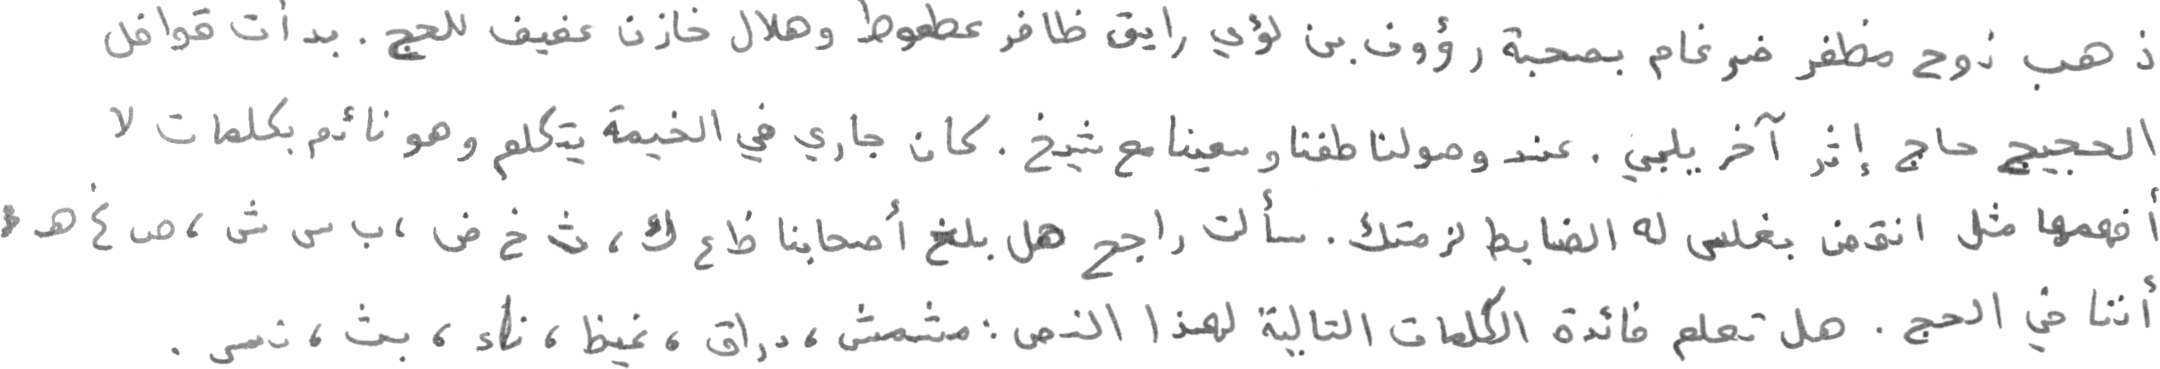 ذهب نوح مظفر ضرغام بصحبة رؤوف بن لؤي رايق ظافر عطعوط وهلال خازن عفيف للحج . بدأت قوافل
الحجيج حاج إثر آخر يلبي . عند وصولنا طفنا وسعينا مع شيخ . كان جاري في الخيمة يتكلم وهو نائم بكلمات لا
أفهمها مثل انقض بغلس له الضابط لزمتك . سألت راجح هل بلغ أصحابنا ظ ع ك ، ث خ ض ، ب س ش ، ص غ هـ
أننا في الحج . هل تعلم فائدة الكلمات التالية لهذا النص : مشمش ، دراق ، غيظ ، نأء ، بث ، نسر .